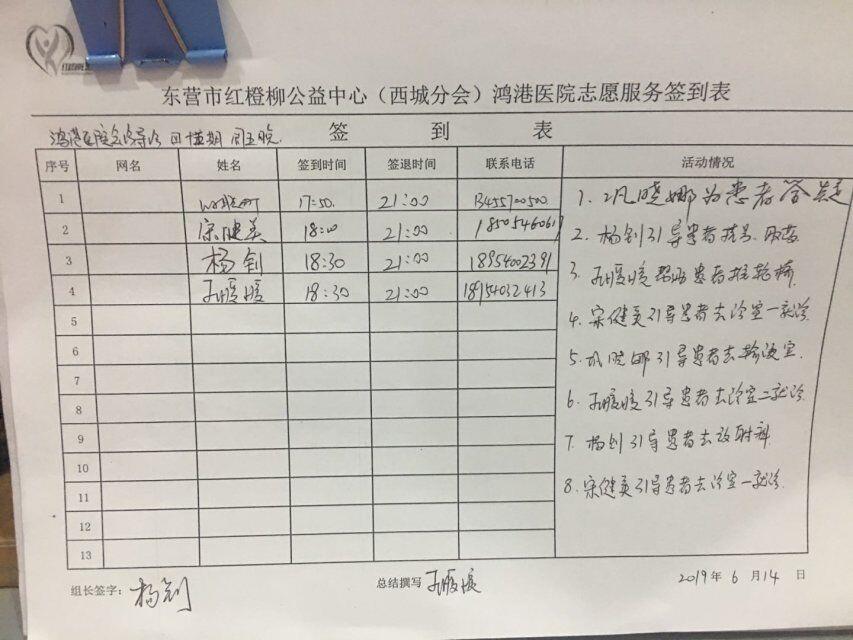 东营市红橙柳公益中心（西城分会）鸿港医院志愿服务签到表
签 到 表
序号 网名 姓名 签到时间 签退时间 联系电话 活动情况
1 17:50. 21:00 13455700500
2 宋健美 18:00 21:00
3 杨钊 18:30 21:00 18954002391
4 孔暖暖 18:30 21:00 18954032413
5
6
7
8
9
10
11
12
13
1. 巩晓娜为患者答疑
2. 杨钊引导患者挂号、取药
3. 孔暖暖帮助患者推轮椅
4. 宋健美引导患者去诊室一就诊
5. 巩晓娜引导患者去输液室.
6. 孔暖暖引导患者去诊室二就诊
7. 杨钊引导患者去放射科
8. 宋健美引导患者去诊室一就诊.
组长签字： 杨钊 总结撰写 孔暖暖 2019 年 6 月 14 日